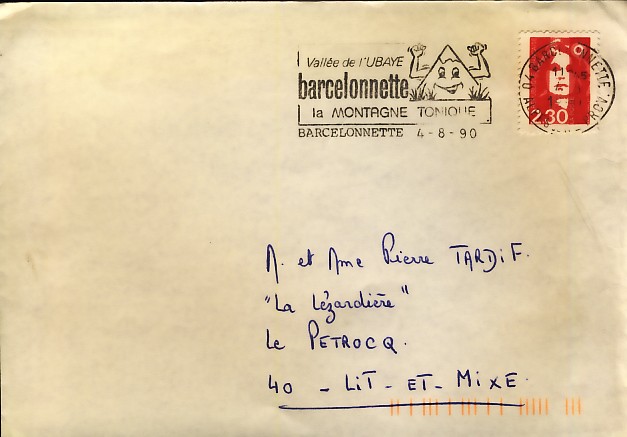 Vallée de l'UBAYE
barcelonnette
la MONTAGNE TONIQUE
BARCELONNETTE 4-8-90
2,30
M. et Mme Pierre TARDIF.
"La Lézardière"
Le PETROCQ.
40 - LIT - ET - MIXE.